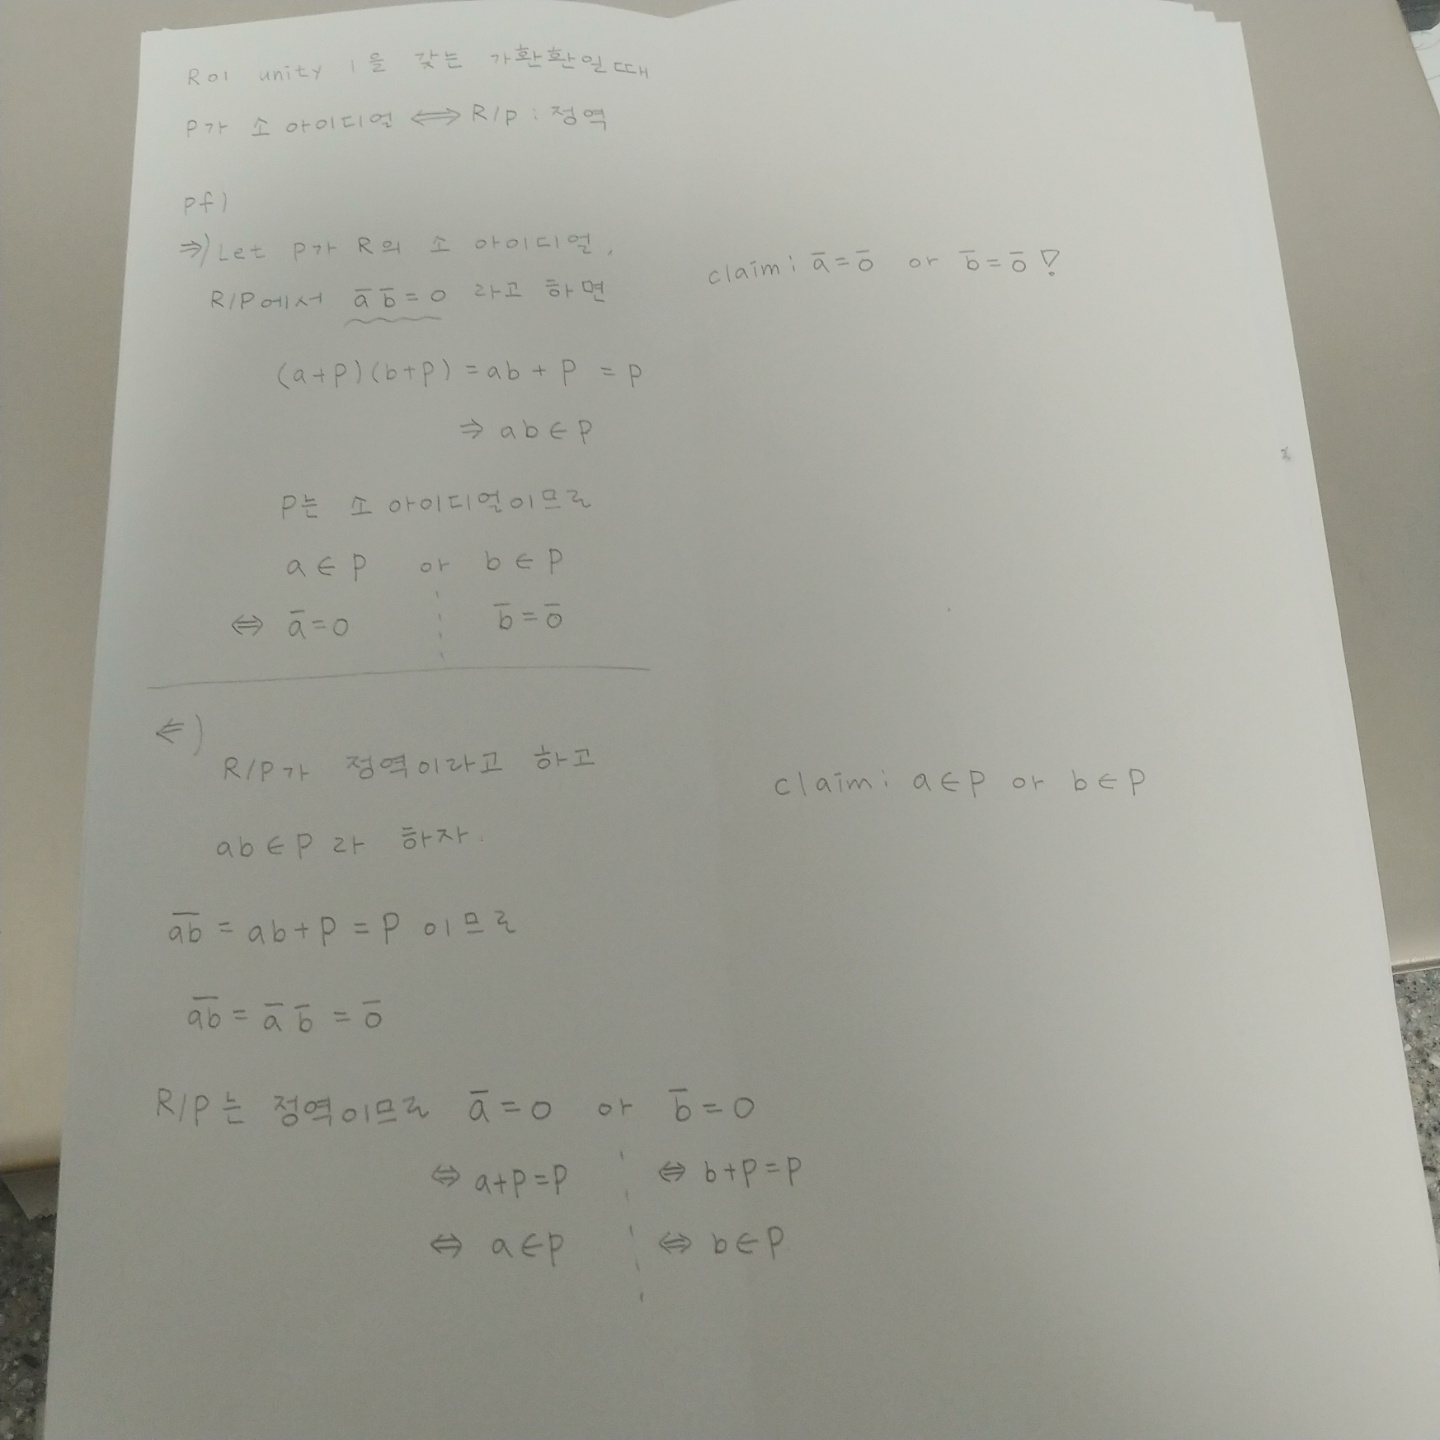 R이 unity 1을 갖는 가환환일때
P가 소 아이디얼 ⟺ R/P : 정역
pf)
⇒) Let P가 R의 소 아이디얼,
claim: ā=ō or b̄=ō!
R/P에서 ā b̄ = 0 라고 하면
(a+P)(b+P) = ab + P = P
⇒ ab∈P
P는 소 아이디얼이므로
a∈P or b∈P
⇔ ā=0 b̄=ō
⇐)
R/P가 정역이라고 하고
claim: a∈P or b∈P
ab∈P라 하자.
a̅b̅ = ab+P = P 이므로
a̅b̅ = ā b̄ = ō
R/P는 정역이므로 ā=0 or b̄=0
⇔ a+P=P ⇔ b+P=P
⇔ a∈P ⇔ b∈P